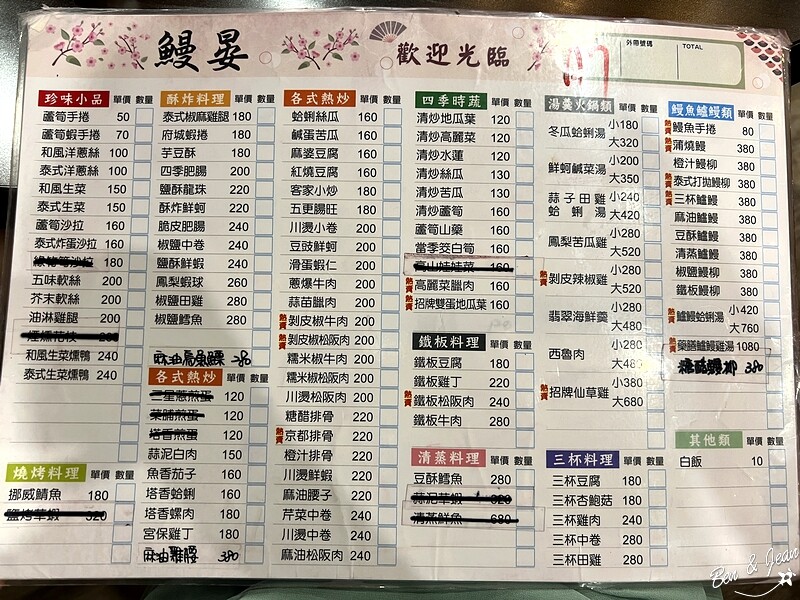 鰻晏
歡迎光臨
外帶號碼
TOTAL
珍味小品 單價 數量
蘆筍手捲 50
蘆筍蝦手捲 70
和風洋蔥絲 100
泰式洋蔥絲 100
和風生菜 150
泰式生菜 150
蘆筍沙拉 160
泰式炸蛋沙拉 160
綠竹筍沙拉 180
五味軟絲 200
芥末軟絲 200
油淋雞腿 200
煙燻花枝
和風生菜燻鴨 240
泰式生菜燻鴨 240
燒烤料理 單價 數量
挪威鯖魚 180
鹽烤草蝦 320
酥炸料理 單價 數量
泰式椒麻雞腿 180
府城蝦捲 180
芋豆酥 180
四季肥腸 200
鹽酥龍珠 220
酥炸鮮蚵 220
脆皮肥腸 240
椒鹽中卷 240
鹽酥鮮蝦 240
鳳梨蝦球 260
椒鹽田雞 280
椒鹽鱈魚 280
各式熱炒 單價 數量
三星蔥煎蛋 120
菜脯煎蛋 120
塔香煎蛋 120
蒜泥白肉 150
魚香茄子 160
塔香蛤蜊 160
塔香螺肉 180
宮保雞丁 180
麻油雞腰 380
各式熱炒 單價 數量
蛤蜊絲瓜 160
鹹蛋苦瓜 160
麻婆豆腐 160
紅燒豆腐 160
客家小炒 180
五更腸旺 180
川燙小卷 200
豆豉鮮蚵 200
滑蛋蝦仁 200
蔥爆牛肉 200
蒜苗臘肉 200
熱賣 剝皮椒牛肉 200
熱賣 剝皮椒松阪肉 200
糯米椒牛肉 200
糯米椒松阪肉 200
川燙松阪肉 200
糖醋排骨 220
熱賣 京都排骨 220
橙汁排骨 220
川燙鮮蝦 220
麻油腰子 220
芹菜中卷 240
川燙中卷 240
麻油松阪肉 240
四季時蔬 單價 數量
清炒地瓜葉 120
清炒高麗菜 120
清炒水蓮 120
清炒絲瓜 130
清炒苦瓜 130
清炒蘆筍 160
蘆筍山藥 160
當季茭白筍 160
高山娃娃菜 160
熱賣 高麗菜臘肉 160
熱賣 招牌雙蛋地瓜葉 160
鐵板料理 單價 數量
鐵板豆腐 180
鐵板雞丁 220
熱賣 鐵板松阪肉 240
鐵板牛肉 280
清蒸料理 單價 數量
豆酥鱈魚 280
蒜泥草蝦 320
清蒸鮮魚 680
湯羹火鍋類 單價 數量
冬瓜蛤蜊湯 小180
大320
鮮蚵鹹菜湯 小200
大350
蒜子田雞蛤蜊湯 小240
大420
鳳梨苦瓜雞 小280
大520
熱賣 剝皮辣椒雞 小280
大520
翡翠海鮮羹 小280
大480
西魯肉 小280
大480
熱賣 招牌仙草雞 小380
大680
三杯料理 單價 數量
三杯豆腐 180
三杯杏鮑菇 180
三杯雞肉 240
三杯中卷 280
三杯田雞 280
鰻魚鱸鰻類 單價 數量
熱賣 鰻魚手捲 80
熱賣 蒲燒鰻 380
橙汁鰻柳 380
熱賣 泰式打拋鰻柳 380
熱賣 三杯鱸鰻 380
麻油鱸鰻 380
豆酥鱸鰻 380
清蒸鱸鰻 380
椒鹽鰻柳 380
鐵板鰻柳 380
熱賣 鱸鰻蛤蜊湯 小420
大760
熱賣 藥膳鱸鰻雞湯 1080
糖醋鰻柳 380
其他類 單價 數量
白飯 10
Ben & Jean